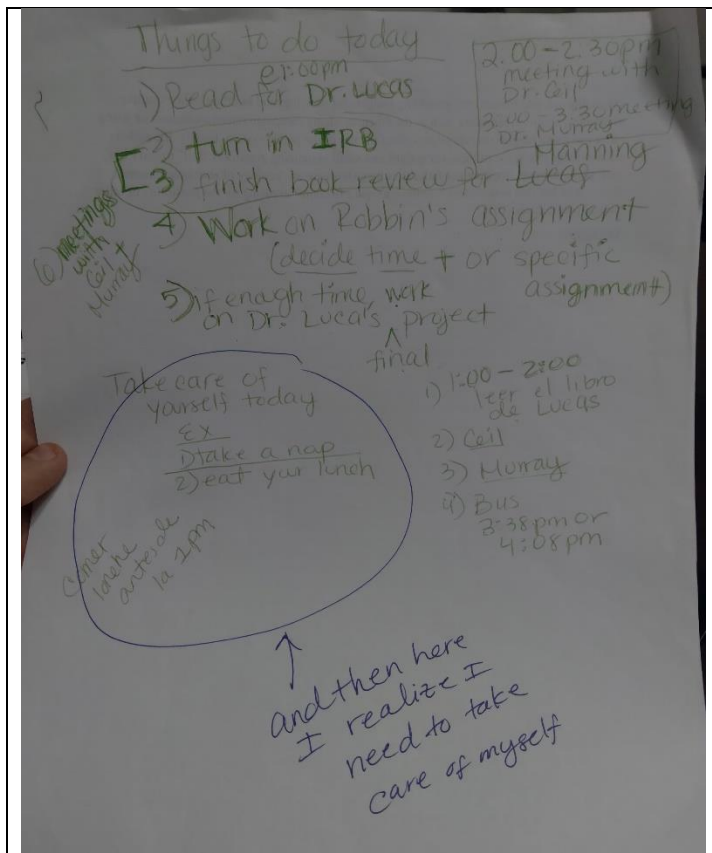 Things to do today
@1:00pm
1) Read for Dr. Lucas
2) turn in IRB
3) finish book review for Lucas
Manning
4) Work on Robbin's assignment
(decide time + or specific
assignment)
5) if enagh time, work
on Dr. Lucas's project
final
6) meetings
with
Ceil +
Murray
2:00-2:30pm
meeting with
Dr. Ceil
3:00-3:30 meeting
Dr. Murray
Take care of
yarself today
EX
1) take a nap
2) eat your lunch
Comer
lonche
antes de
la 1pm
1) 1:00-2:00
leer el libro
de Lucas
2) Ceil
3) Murray
4) Bus
3:38pm or
4:08pm
and then here
I realize I
need to take
care of myself